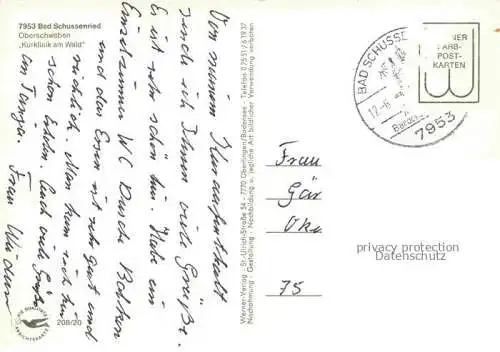 7953 Bad Schussenried
Oberschwaben
„Kurklinik am Wald“
Von meinem Kuraufenthalt
sende ich Ihnen viele Grüße.
Es ist sehr schön hier. Habe ein
Einzelzimmer WC Dusche Balkon
und das Essen ist sehr gut und
reichlich. Man kann sich hier
schon erholen. Auch viele Grüße
an
Frau
Werner-Verlag · St.-Ulrich-Straße 54 · 7770 Überlingen/Bodensee · Telefon 0 75 51 / 6 19 37
Nachahmung · Gestaltung · Nachbildung u. jegliche Art bildlicher Verwendung verboten
208/20
BAD SCHUSSE
7953
NER
FARB-
POST-
KARTEN
Frau
Gär
75
privacy protection
Datenschutz